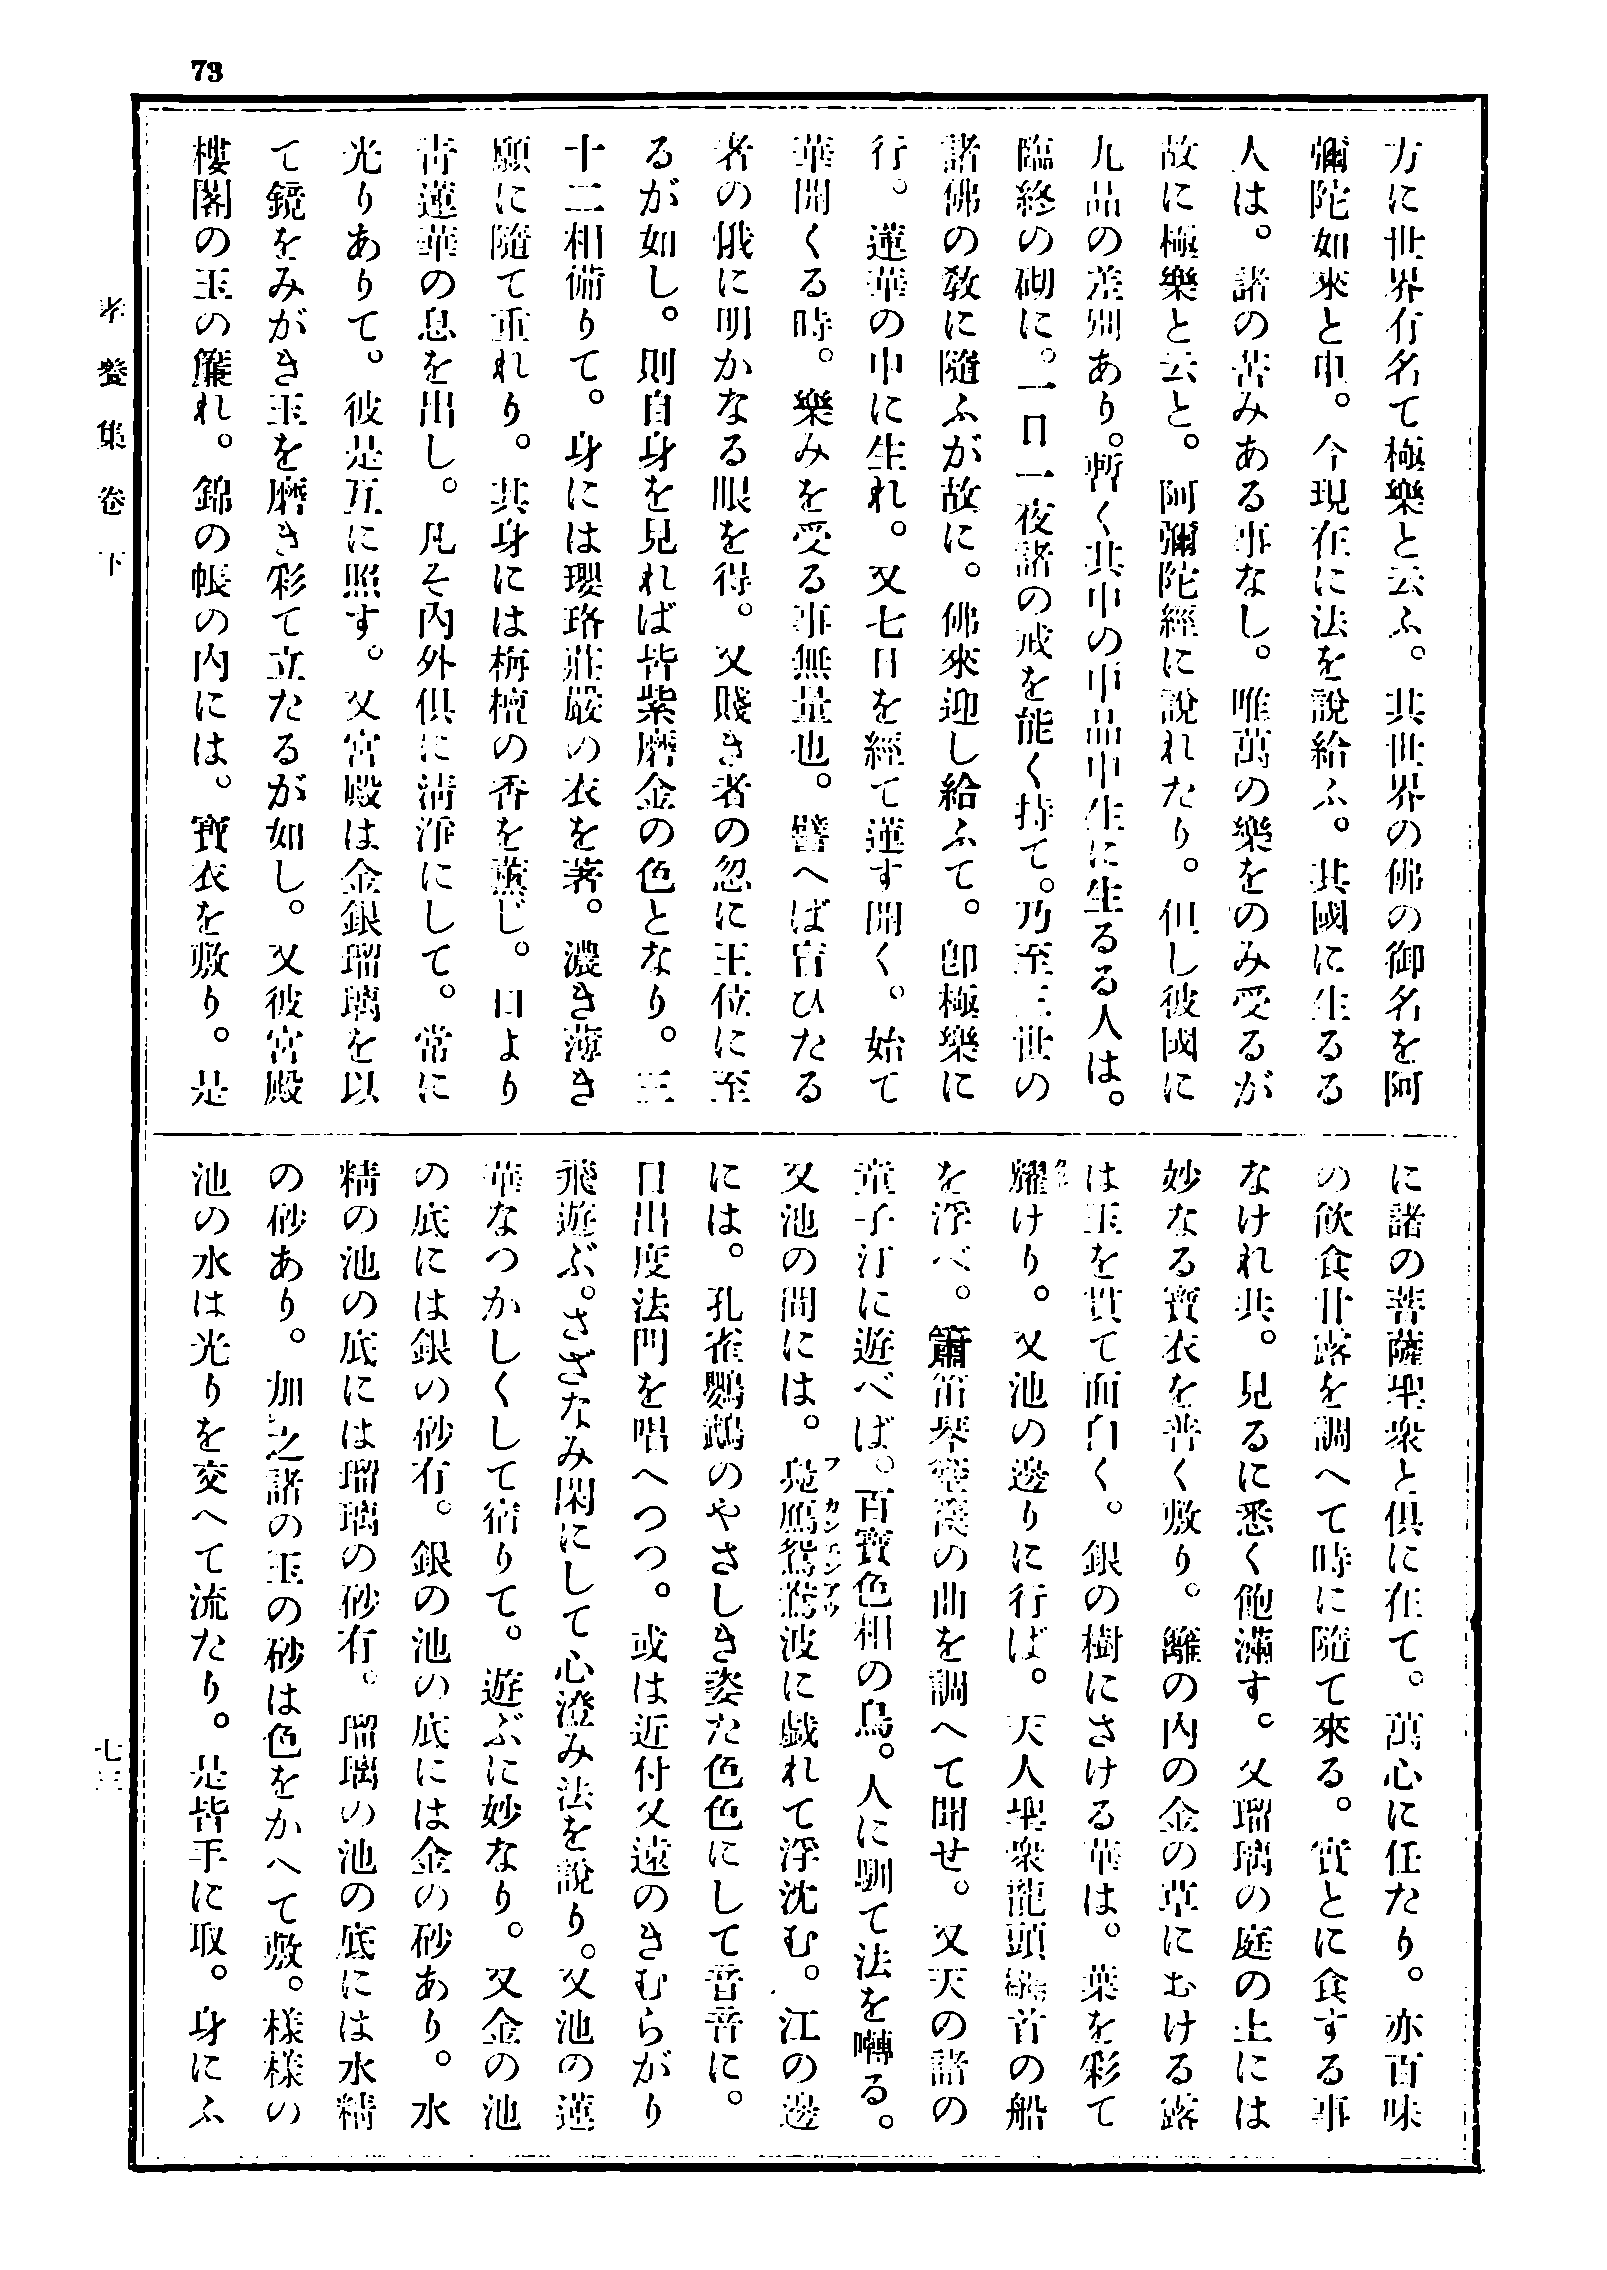 73
方に世界有名て極樂と云ふ。其世界の佛の御名を阿
彌陀如來と申。今現在に法を說給ふ。其國に生るる
人は。諸の苦みある事なし。唯萬の樂をのみ受るが
故に極樂と云と。阿彌陀經に說れたり。但し彼國に
九品の差別あり。暫く其中の中品中生に生るる人は。
臨終の砌に。一日一夜諸の戒を能く持て。乃至三世の
諸佛の敎に隨ふが故に。佛來迎し給ふて。卽極樂に
行。蓮華の中に生れ。又七日を經て蓮す開く。始て
華開くる時。樂みを受る事無量也。譬へば盲ひたる
者の俄に明かなる眼を得。又賤き者の忽に王位に至
るが如し。則自身を見れば皆紫磨金の色となり。三
十二相備りて。身には瓔珞莊嚴の衣を著。濃き薄き
願に隨て重れり。其身には栴檀の香を薰じ。口より
靑蓮華の息を出し。凡そ內外俱に淸淨にして。常に
光りありて。彼是互に照す。又宮殿は金銀瑠璃を以
て鏡をみがき玉を磨き彩て立たるが如し。又彼宮殿
樓閣の玉の簾れ。錦の帳の内には。寶衣を敷り。是
に諸の菩薩聖衆と俱に在て。萬心に任たり。亦百味
の飮食甘露を調へて時に隨て來る。實とに食する事
なけれ共。見るに悉く飽滿す。又瑠璃の庭の上には
妙なる寶衣を普く敷り。籬の内の金の草にむける露
は玉を貫て面白く。銀の樹にさける華は。葉を彩て
耀けり。又池の邊りに行ば。天人聖衆龍頭鷁首の船
を浮べ。簫笛琴箜篌の曲を調へて聞せ。又天の諸の
童子汀に遊べば。百寶色相の鳥。人に馴て法を囀る。
又池の間には。鳧鴈鴛鴦波に戯れて浮沈む。江の邊
には。孔雀鸚鵡のやさしき姿た色色にして音音に。
日出度法門を唱へつつ。或は近付又遠のきむらがり
飛遊ぶ。さざなみ閑にして心澄み法を說り。又池の蓮
華なつかしくして宿りて。遊ぶに妙なり。又金の池
の底には銀の砂有。銀の池の底には金の砂あり。水
精の池の底には瑠璃の砂有。瑠璃の池の底には水精
の砂あり。加之諸の玉の砂は色をかへて敷。樣樣の
池の水は光りを交へて流たり。是皆手に取。身にふ
孝養集卷下
七三